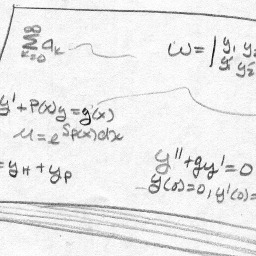 ∞
Σ aₖ
k=0
ω = | y₁ y₂
y₁' y₂'
y' + P(x)y = g(x)
μ = e^∫p(x)dx
= y_H + y_P
y'' + gy' = 0
y(0) = 0, y'(0) =